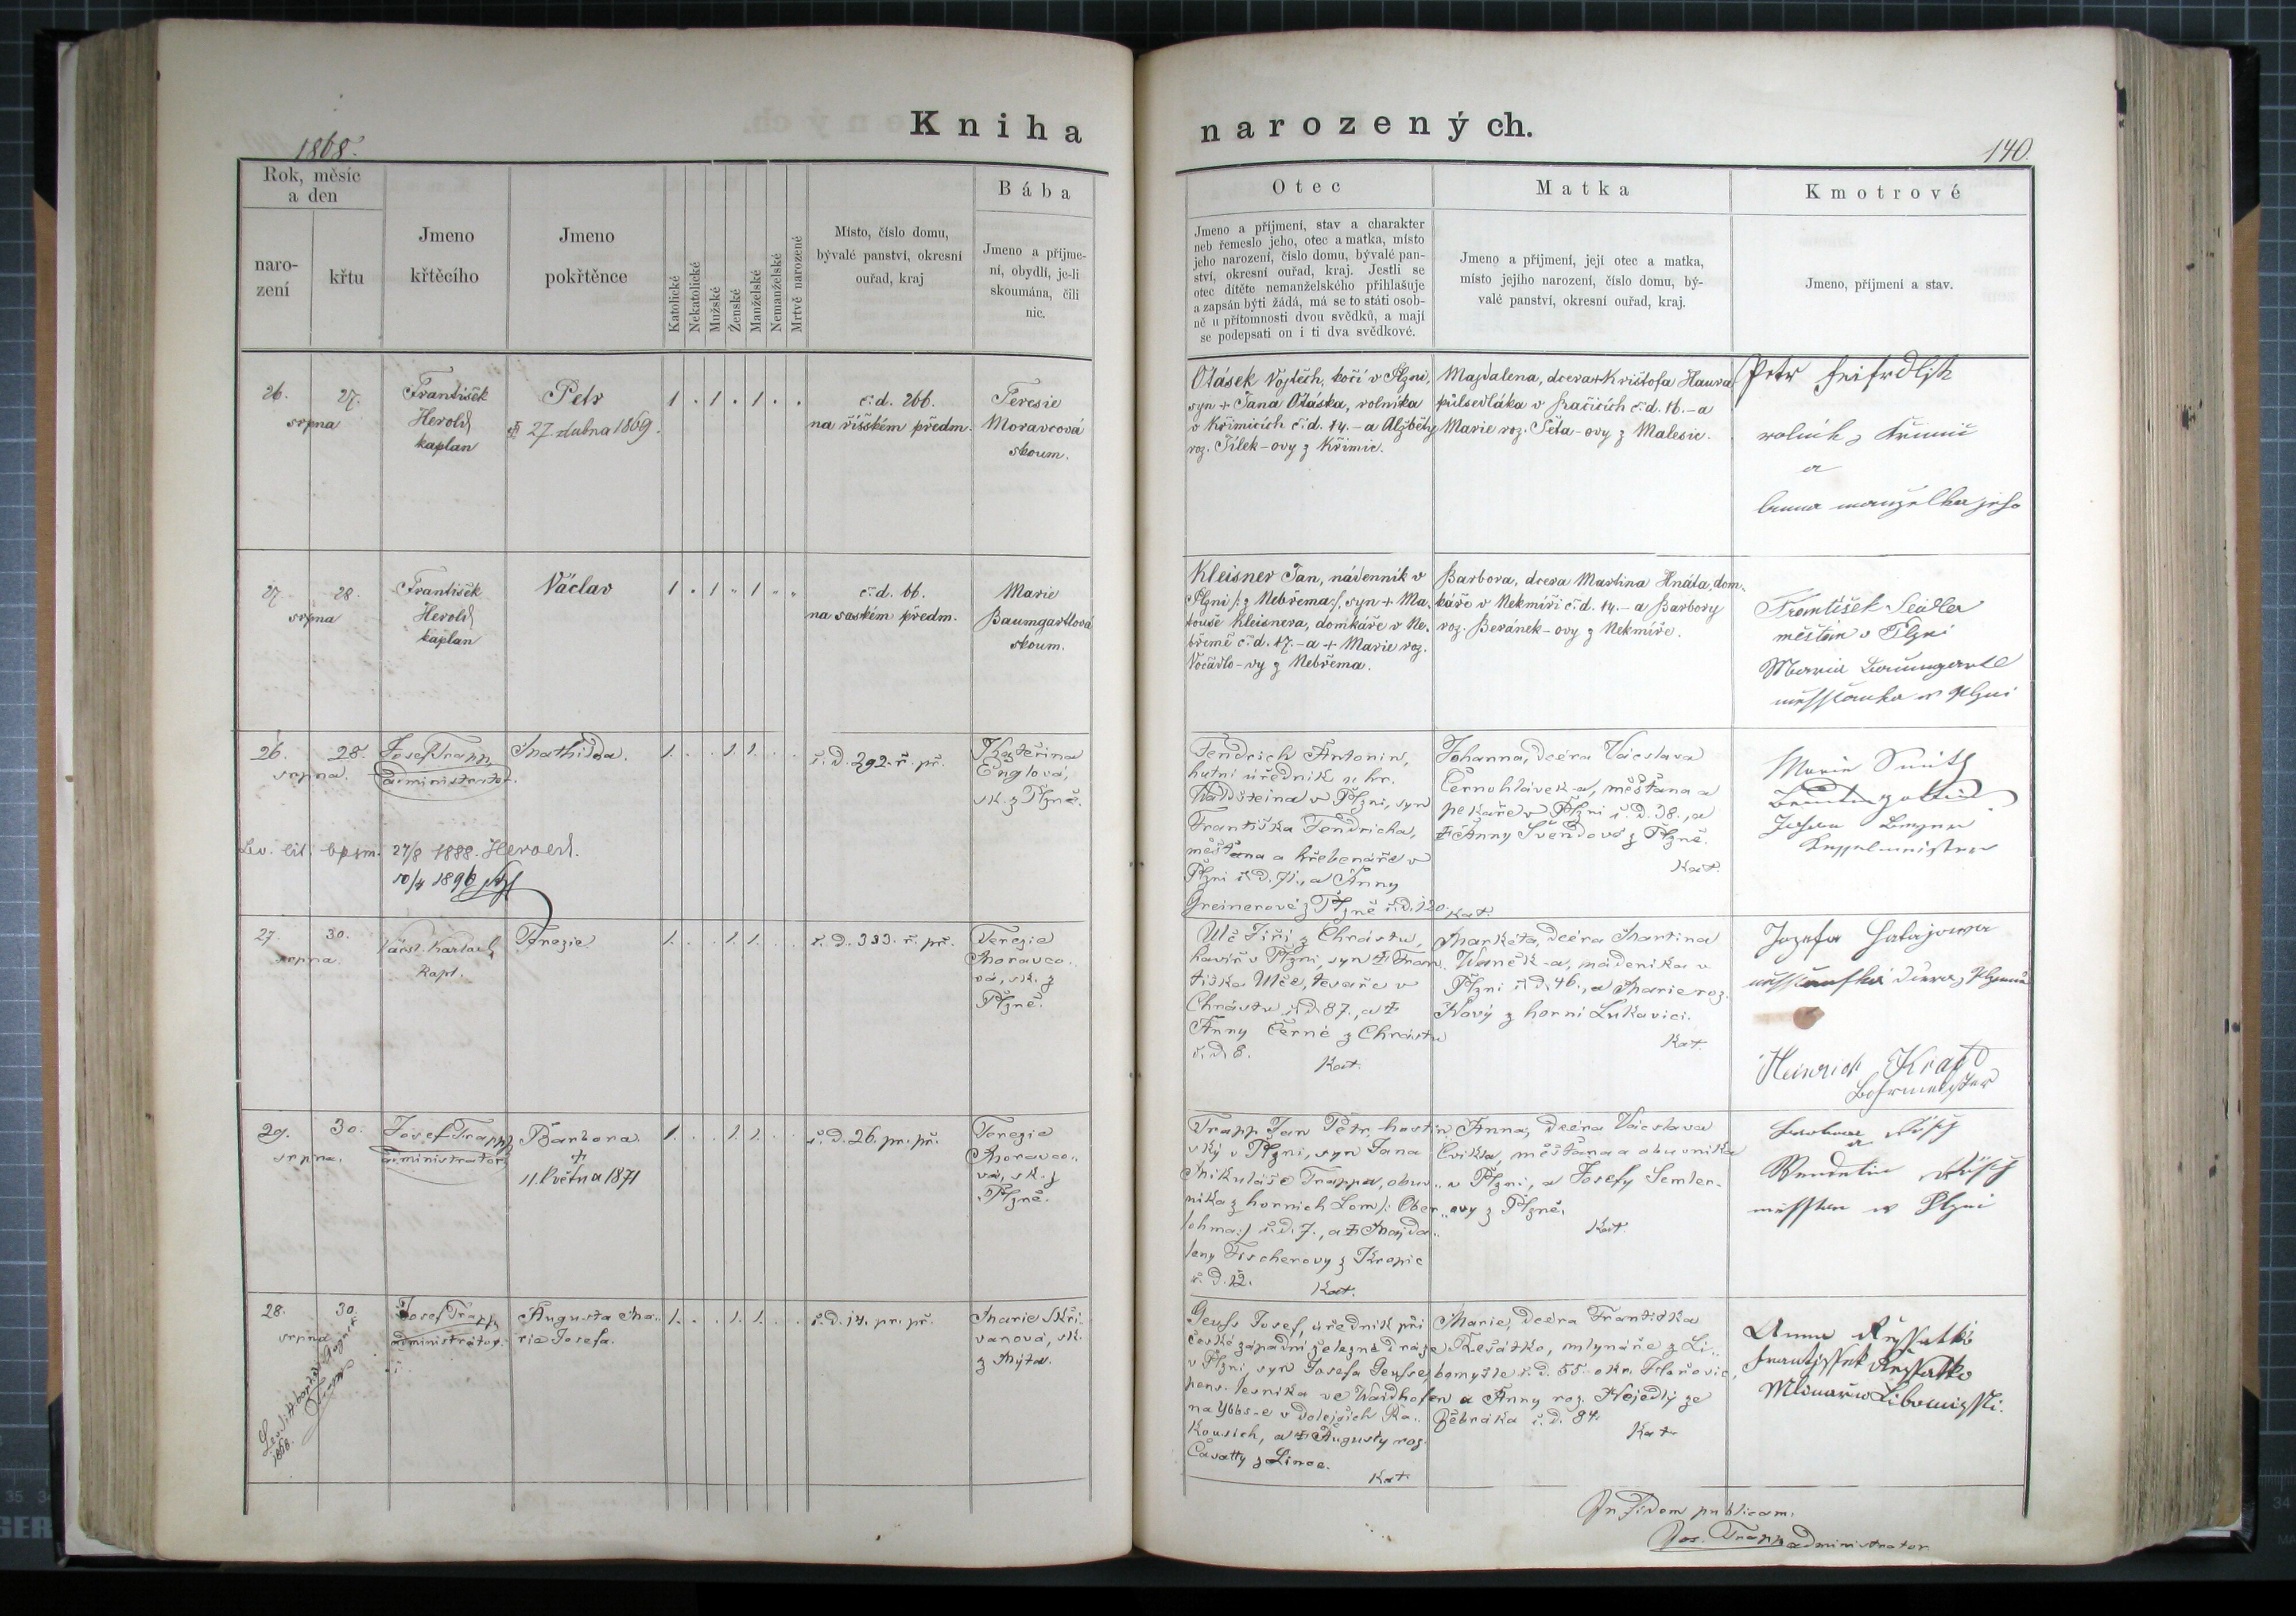 Kniha
narozených.
1868.
140.
Rok, měsíc
a den
naro-
zení
křtu
Jmeno
křtěcího
Jmeno
pokřtěnce
Katolické
Nekatolické
Mužské
Ženské
Manželské
Nemanželské
Mrtvě narozené
Místo, číslo domu,
bývalé panství, okresní
ouřad, kraj
Bába
Jmeno a příjme-
ní, obydlí, je-li
skoumána, čili
nic.
Otec
Jmeno a příjmení, stav a charakter
neb řemeslo jeho, otec a matka, místo
jeho narození, číslo domu, bývalé pan-
ství, okresní ouřad, kraj. Jestli se
otec dítěte nemanželského přihlašuje
a zapsán býti žádá, má se to státi osob-
ně u přítomnosti dvou svědků, a mají
se podepsati on i ti dva svědkové.
Matka
Jmeno a příjmení, její otec a matka,
místo jejího narození, číslo domu, bý-
valé panství, okresní ouřad, kraj.
Kmotrové
Jmeno, příjmení a stav.
26. 27.
srpna
František
Herold
kaplan
Petr
27. dubna 1869.
1 . 1 . 1 . .
č. d. 266.
na říšském předm.
Teresie
Moravcová
skoum.
Otásek Vojtěch, kočí v Plzni,
syn + Jana Otáska, rolníka
v Křimicích č. d. 14. – a Alžběty
roz. Jílek-ovy z Křimic.
Magdalena, dcera + Krištofa Haura
půlsedláka v č. d. 16. – a
Marie roz. Šeta-ovy z Malesic.
Petr
rolník z Křimic
a
Anna manželka jeho
27. 28.
srpna
František
Herold
kaplan
Václav
1 . 1 . 1 . .
č. d. 66.
na saském předm.
Marie
Baumgartlová
skoum.
Kleisner Jan, nádenník v
Plzni /: z Nebřema :/, syn + Ma-
touše Kleisnera, domkáře v Ne-
břemě č. d. 17. – a + Marie roz.
Vočádlo-vy z Nebřema.
Barbora, dcera Martina Hnáta, dom-
káře v Nekmíři č. d. 14. – a Barbory
roz. Beránek-ovy z Nekmíře.
František Seidler
měštan v Plzni
Maria Baumgartl
v Plzni
26. 28.
srpna.
Josef Trapp,
administrátor.
Mathilda.
1. . . 1. 1. . .
č. d. 292. ř. př.
Kateřina
Englová,
sk. z Plzně.
Fendrich Antonin,
hutní úředník u hr.
Waldšteina v Plzni, syn
Františka Fendricha,
měšťana a hřebenáře v
Plzni č. d. 71., a Anny
Greinerové z Plzně č. d. 120.
Kat.
Johanna, dcéra Vácslava
Černohlávek-a, měšťana a
pekaře v Plzni č. d. 38., a
Anny Švendové z Plzně.
Kat.
Marie
Johann
Kapellmeister
27/8 1888. Herold.
10/4 1896
27. 30.
srpna.
kapl.
Terezie
1. . . 1. 1. . .
č. d. 333. ř. př.
Terezie
Moravco-
vá, sk. z
Plzně.
Ulč Jiří z Chrástu,
havíř v Plzni, syn Fran-
tiška Ulče, tesaře v
Chrástu č. d. 87., a
Anny Černé z Chrástu
č. d. 8.
Kat.
Markéta, dcéra Martina
Waněk-a, nádeníka v
Plzni č. d. 46., a Marie roz.
Nový z horní Lukavici.
Kat.
Jozefa
dcera z Plzně
Heinrich Kraft
Bohrmeister
29. 30.
srpna.
Josef Trapp,
administrátor
Barbora.
11. Května 1871
1. . . 1. 1. . .
č. d. 26. pr. př.
Terezie
Moravco-
vá, sk. z
Plzně.
Trapp Jan Petr, hostin-
ský v Plzni, syn Jana
Mikuláše Trappa, obuv-
nika z horních Lom /: Ober-
lohma :/ č. d. 7., a Magda-
leny Fischerovy z Kropic
č. d. 12.
Kat.
Anna, dcéra Vácslava
Cvikla, měšťana a obuvníka
v Plzni, a Josefy Semler-
ovy z Plzně.
Kat.
Barbora
a
Wendelin
v Plzni
28. 30.
srpna
Josef Trapp,
administrátor.
Augusta Ma-
rie Josefa.
1. . . 1. 1. . .
č. d. 14. pr. př.
Marie Skři-
vanová, sk.
z Mýta.
Geuss Josef, úředník při
české západní železné dráze
v Plzni, syn Josefa Geusse,
pens. lesníka ve Waidhofen
na Ybbs-e v dolejších Ra-
kousích, a Augusty roz.
Casatty z Lince.
Kat.
Marie, dcéra Františka
Řešátko, mlynáře z Li-
bomyšle č. d. 55. okr. Hořovic,
a Anny roz. Nejedlý ze
Žebráka č. d. 84.
Kat.
Anna Ržessatko
Frantissek Ržessatko
Mlinař w Libomissli.
1868.
In fidem publicam.
Jos. Trapp administrator